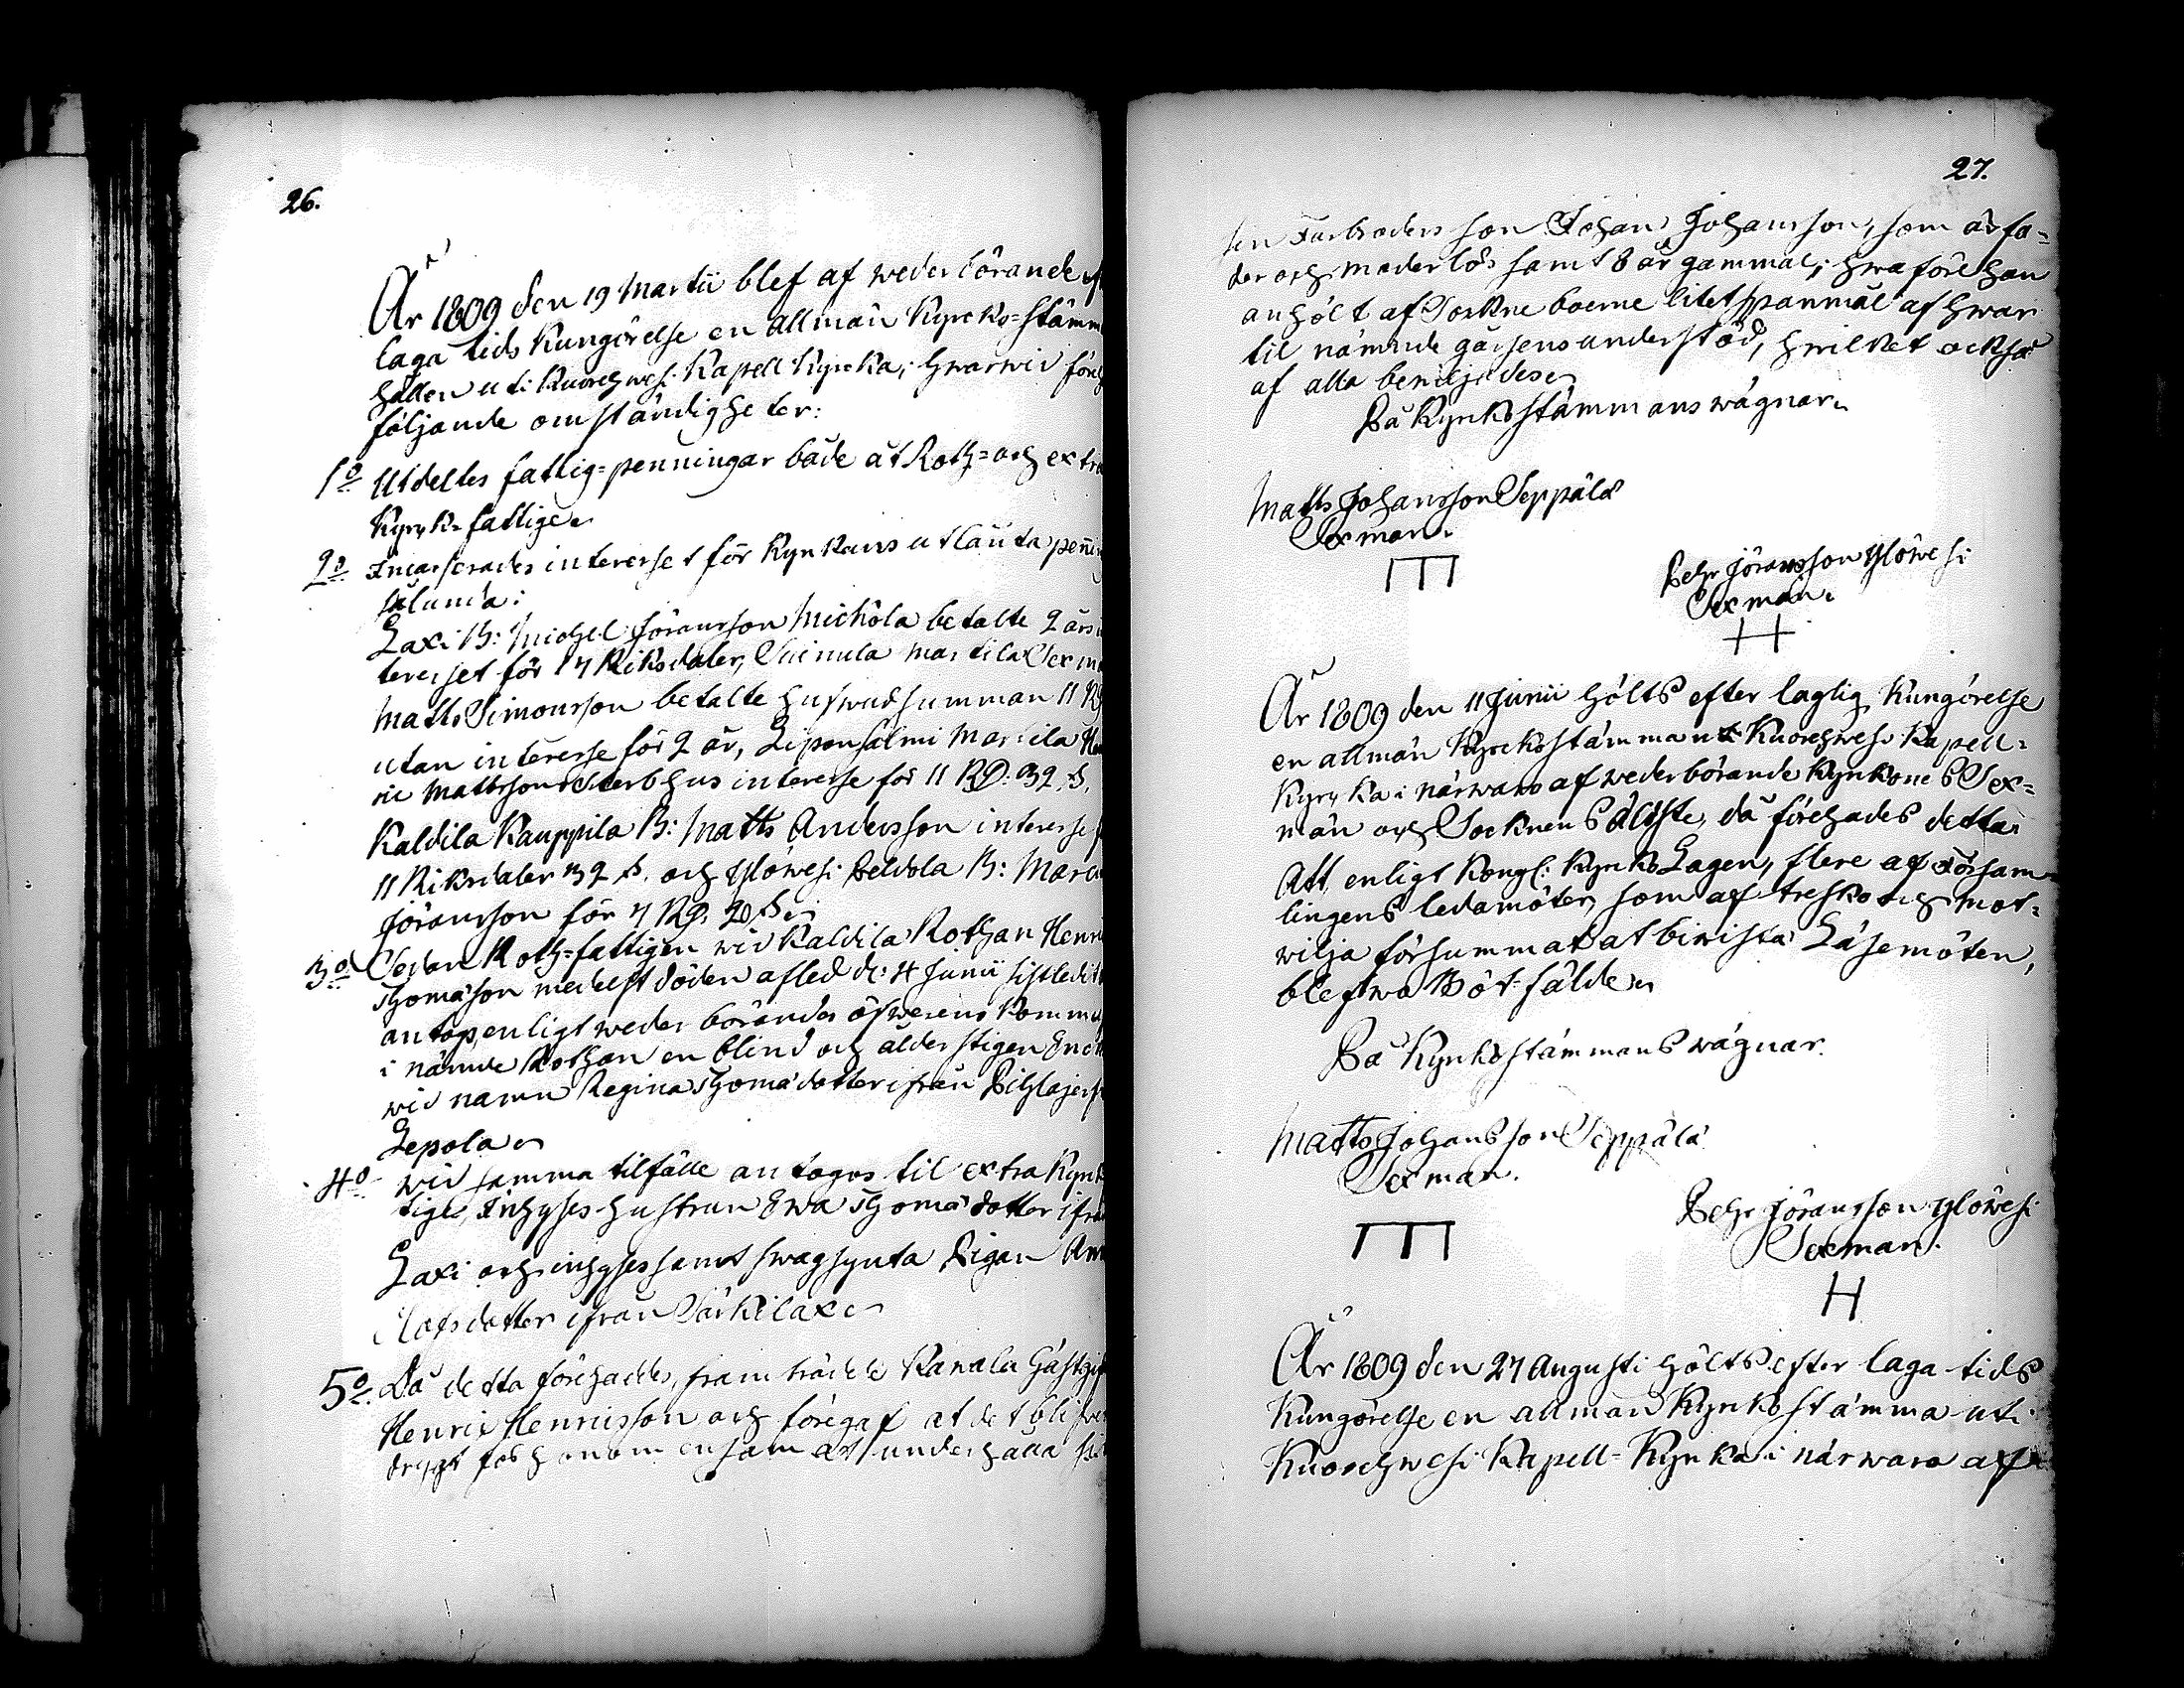 26.
År 1809 den 19 Martii blef af wederbörande
laga tids kungörelse en allmän Kyrko=stämm
hållen uti Kuorehwesi Kapell Kyrka; hwarwid
följande omständigheter:
1o Utdeltes fattig=penningar både åt Roth= och extra
Kyrk=fattige.
2o Incasserades interesset för Kyrkans utlånta
sålunda:
Laxi B: Michel Jöransson Mickola betalte 2 års
teresset för 17 Riksdaler, Suinula Martila Sexm
Matts Simonsson betalte hufwudsumman 11
utan interesse för 2 år, Leponsalmi Martila
Mattsson Sterbhus interesse för 11 RD. 32 s.
Kaldila Kauppila B: Matts Andersson interesse
11 Riksdaler 32 s. och Ylöwesi Peldola B: Marc
Jöransson för 7 RD. 20 s.
3o Sedan Roth=fattigen wid Kaldila Rothan Henri
Thomasson medelst döden afled d: 4 Junii sistledit
antogs, enligt wederbörandes öfwerens komm
i nämde Rothan en blind och ålderstigen
wid namn Regina Thomadotter ifrån Pihlajes
Lepola.
4o wid samma tilfälle antogos til extra Kyrk
tige, Inhyses-hustrun Ewa Thomadotter ifrå
Laxi och inhyses samt swagsynta Pigan
Olofsdotter ifrån Särkilax.
5o Då detta förehades, framträdde Kawala Gästgif
Henric Henricsson och föregaf at det blifwer
drygt för honom ensam at underhålla si
27.
sin Farbroders son Johan Johansson, som är fa=
der och moderlös samt 8 år gammal; hwaföre han
anhölt af Sockneboerne litet Spanmål af hwar
til nämnde gåssens understöd, hwilket också
af alla beviljades.
På Kyrkostämmans wägnar.
Matts Johansson Seppälä
Sexman.
Pehr Jöransson Ylöwesi
Sexman.
H
År 1809 den 11 Junii hölts efter laglig Kungörelse
en allmän Kyrckostämma uti Kuorehwesi Kapell=
Kyrka i närwaro af wederbörande Kyrkones Sex=
män och Socknens äldste, då förehades detta:
Att, enligt Kongl: Kyrko Lagen, flere af Försam=
lingens ledamöter, som af tresko och mot=
wilja försummat at biwista Läsemöten,
blefwo Bötfälde.
På Kyrkostämmans wägnar.
Matts Johansson Seppälä
Sexman.
Pehr Jöransson Ylöwesi
Sexman.
H
År 1809 den 27 Augusti hölts efter laga tids
Kungörelse en allmän Kyrkostämma uti
Kuorehwesi Kapell=Kyrka i närwaro af